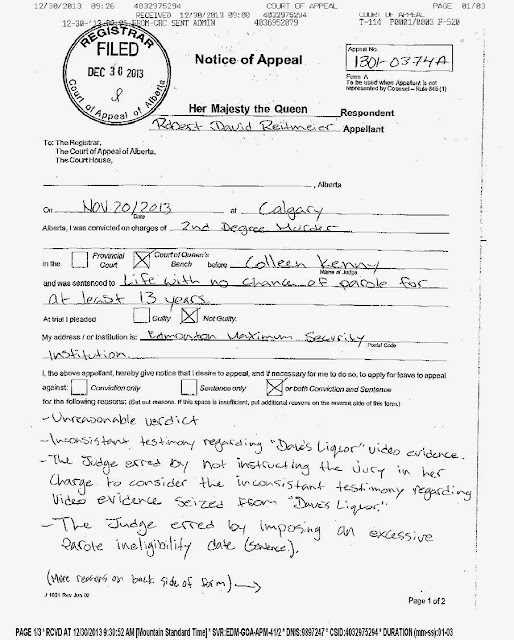 12/30/2013 09:26 4032975294 COURT OF APPEAL PAGE 01/03
RECEIVED 12/30/2013 09:08 4032975294 COURT OF APPEAL
12-30-'13 FROM-CRC SENT ADMIN 4036952079 T-114 P0001/0003 F-520
REGISTRAR
FILED
DEC 30 2013
Court of Appeal of Alberta
Notice of Appeal
Appeal No.
1301-0374A
Form A
To be used when Appellant is not
represented by Counsel – Rule 845 (1)
Her Majesty the Queen Respondent
Robert David Reitmeier Appellant
To: The Registrar,
The Court of Appeal of Alberta,
The Court House,
, Alberta
On NOV. 20/2013 at Calgary
Date
Alberta, I was convicted on charges of 2nd Degree Murder
in the Provincial Court Court of Queen's Bench before Colleen Kenny
Name of Judge
and was sentenced to Life with no chance of parole for
at least 13 years.
At trial I pleaded Guilty Not Guilty.
My address / or institution is: Edmonton Maximum Security
Postal Code
Institution
I, the above appellant, hereby give notice that I desire to appeal, and if necessary for me to do so, to apply for leave to appeal
against: Conviction only Sentence only or both Conviction and Sentence
for the following reasons: (Set out reasons. If this space is insufficient, put additional reasons on the reverse side of this form.)
- Unreasonable verdict
- Inconsistant testimony regarding "Dave's Liquor" video evidence.
- The Judge erred by not instructing the jury in her
Charge to consider the inconsistant testimony regarding
Video evidence seized from "Dave's Liquor".
- The Judge erred by imposing an excessive
Parole ineligibility date (sentence).
(More reasons on back side of form)
J 1031 Rev Jun 02
Page 1 of 2
PAGE 1/3 * RCVD AT 12/30/2013 9:30:52 AM [Mountain Standard Time] * SVR:EDM-GOA-APM-41/2 * DNIS:9897247 * CSID:4032975294 * DURATION (mm-ss):01-03